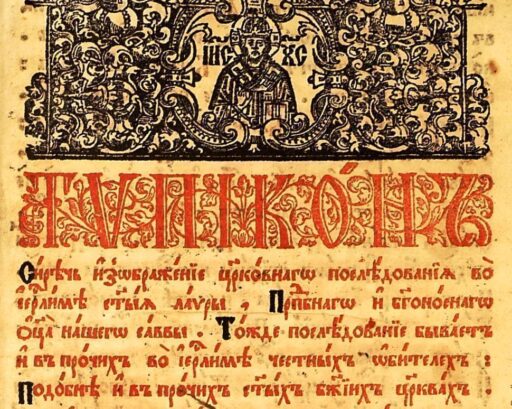 ІИС ХС
ТѴПІКО́НЪ
Сирѣчь и҆зѡбраже́нїе цр҃ко́внагѡ послѣ́дованїѧ во
і҆ер҃ли́мѣ ст҃ы́ѧ ла́ѵры , Прпⷣбнагѡ и҆ бг҃оно́снагѡ
ѻ҆ц҃а̀ на́шегѡ са́ввы . То́жде послѣ́дованїе быва́етъ
и҆ в про́чихъ во і҆ер҃ли́мѣ честны́хъ ѡ҆би́телех :
Подо́бнѣ и҆ в про́чихъ ст҃ы́хъ бж҃їихъ цр҃квахъ .